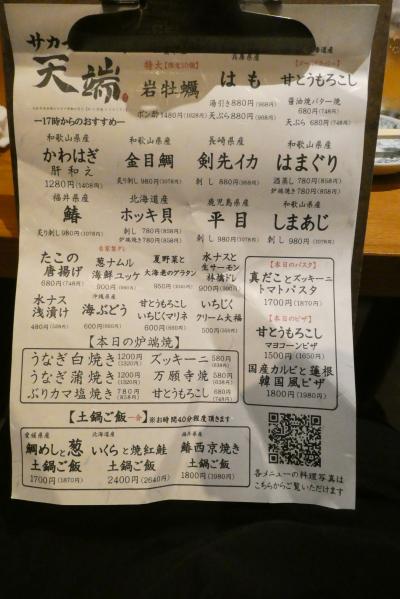 サカ
天端
ー17時からのおすすめー
特大【限定10個】
岩牡蠣
ポン酢 1480円(1628円)
兵庫県産
はも
湯引き880円(968円)
天ぷら880円(968円)
北海道産
甘とうもろこし
醤油焼バター焼
680円(748円)
天ぷら 680円(748円)
和歌山県産
かわはぎ
肝和え
1280円(1408円)
和歌山県産
金目鯛
炙り刺し 980円(1078円)
長崎県産
剣先イカ
刺し 880円(968円)
和歌山県産
はまぐり
酒蒸し 780円(858円)
炉端焼き 780円(858円)
福井県産
鰆
炙り刺し 980円(1078円)
北海道産
ホッキ貝
刺し 780円(858円)
炉端焼き 780円(858円)
鹿児島県産
平目
刺し 980円(1078円)
和歌山県産
しまあじ
刺し 980円(1078円)
たこの
唐揚げ
680円(748円)
自家製ダレ
葱ナムル
海鮮ユッケ
900円(990円)
夏野菜と
大海老のグラタン
950円(1045円)
水ナスと
生サーモン
林檎ドレ
900円(990円)
水ナス
浅漬け
480円(528円)
沖縄県産
海ぶどう
600円(660円)
甘とうもろこし
いちじくマリネ
600円(660円)
いちじく
クリーム大福
500円(550円)
【本日のパスタ】
真だことズッキーニ
トマトパスタ
1700円(1870円)
【本日のピザ】
甘とうもろこし
マヨコーンピザ
1500円(1650円)
国産カルビと蓮根
韓国風ピザ
1800円(1980円)
【本日の炉端焼】
うなぎ白焼き 1200円(1320円) ズッキーニ 580円(638円)
うなぎ蒲焼き 1200円(1320円) 万願寺焼 580円(638円)
ぶりカマ塩焼き 780円(858円) とうもろこし 680円(748円)
【土鍋ご飯一合】※お時間40分程度頂きます
愛媛県産
鯛めしと葱
土鍋ご飯
1700円(1870円)
北海道産
いくらと焼紅鮭
土鍋ご飯
2400円(2640円)
福井県産
鰆西京焼き
土鍋ご飯
1800円(1980円)
各メニューの料理写真は
こちらからご覧いただけます